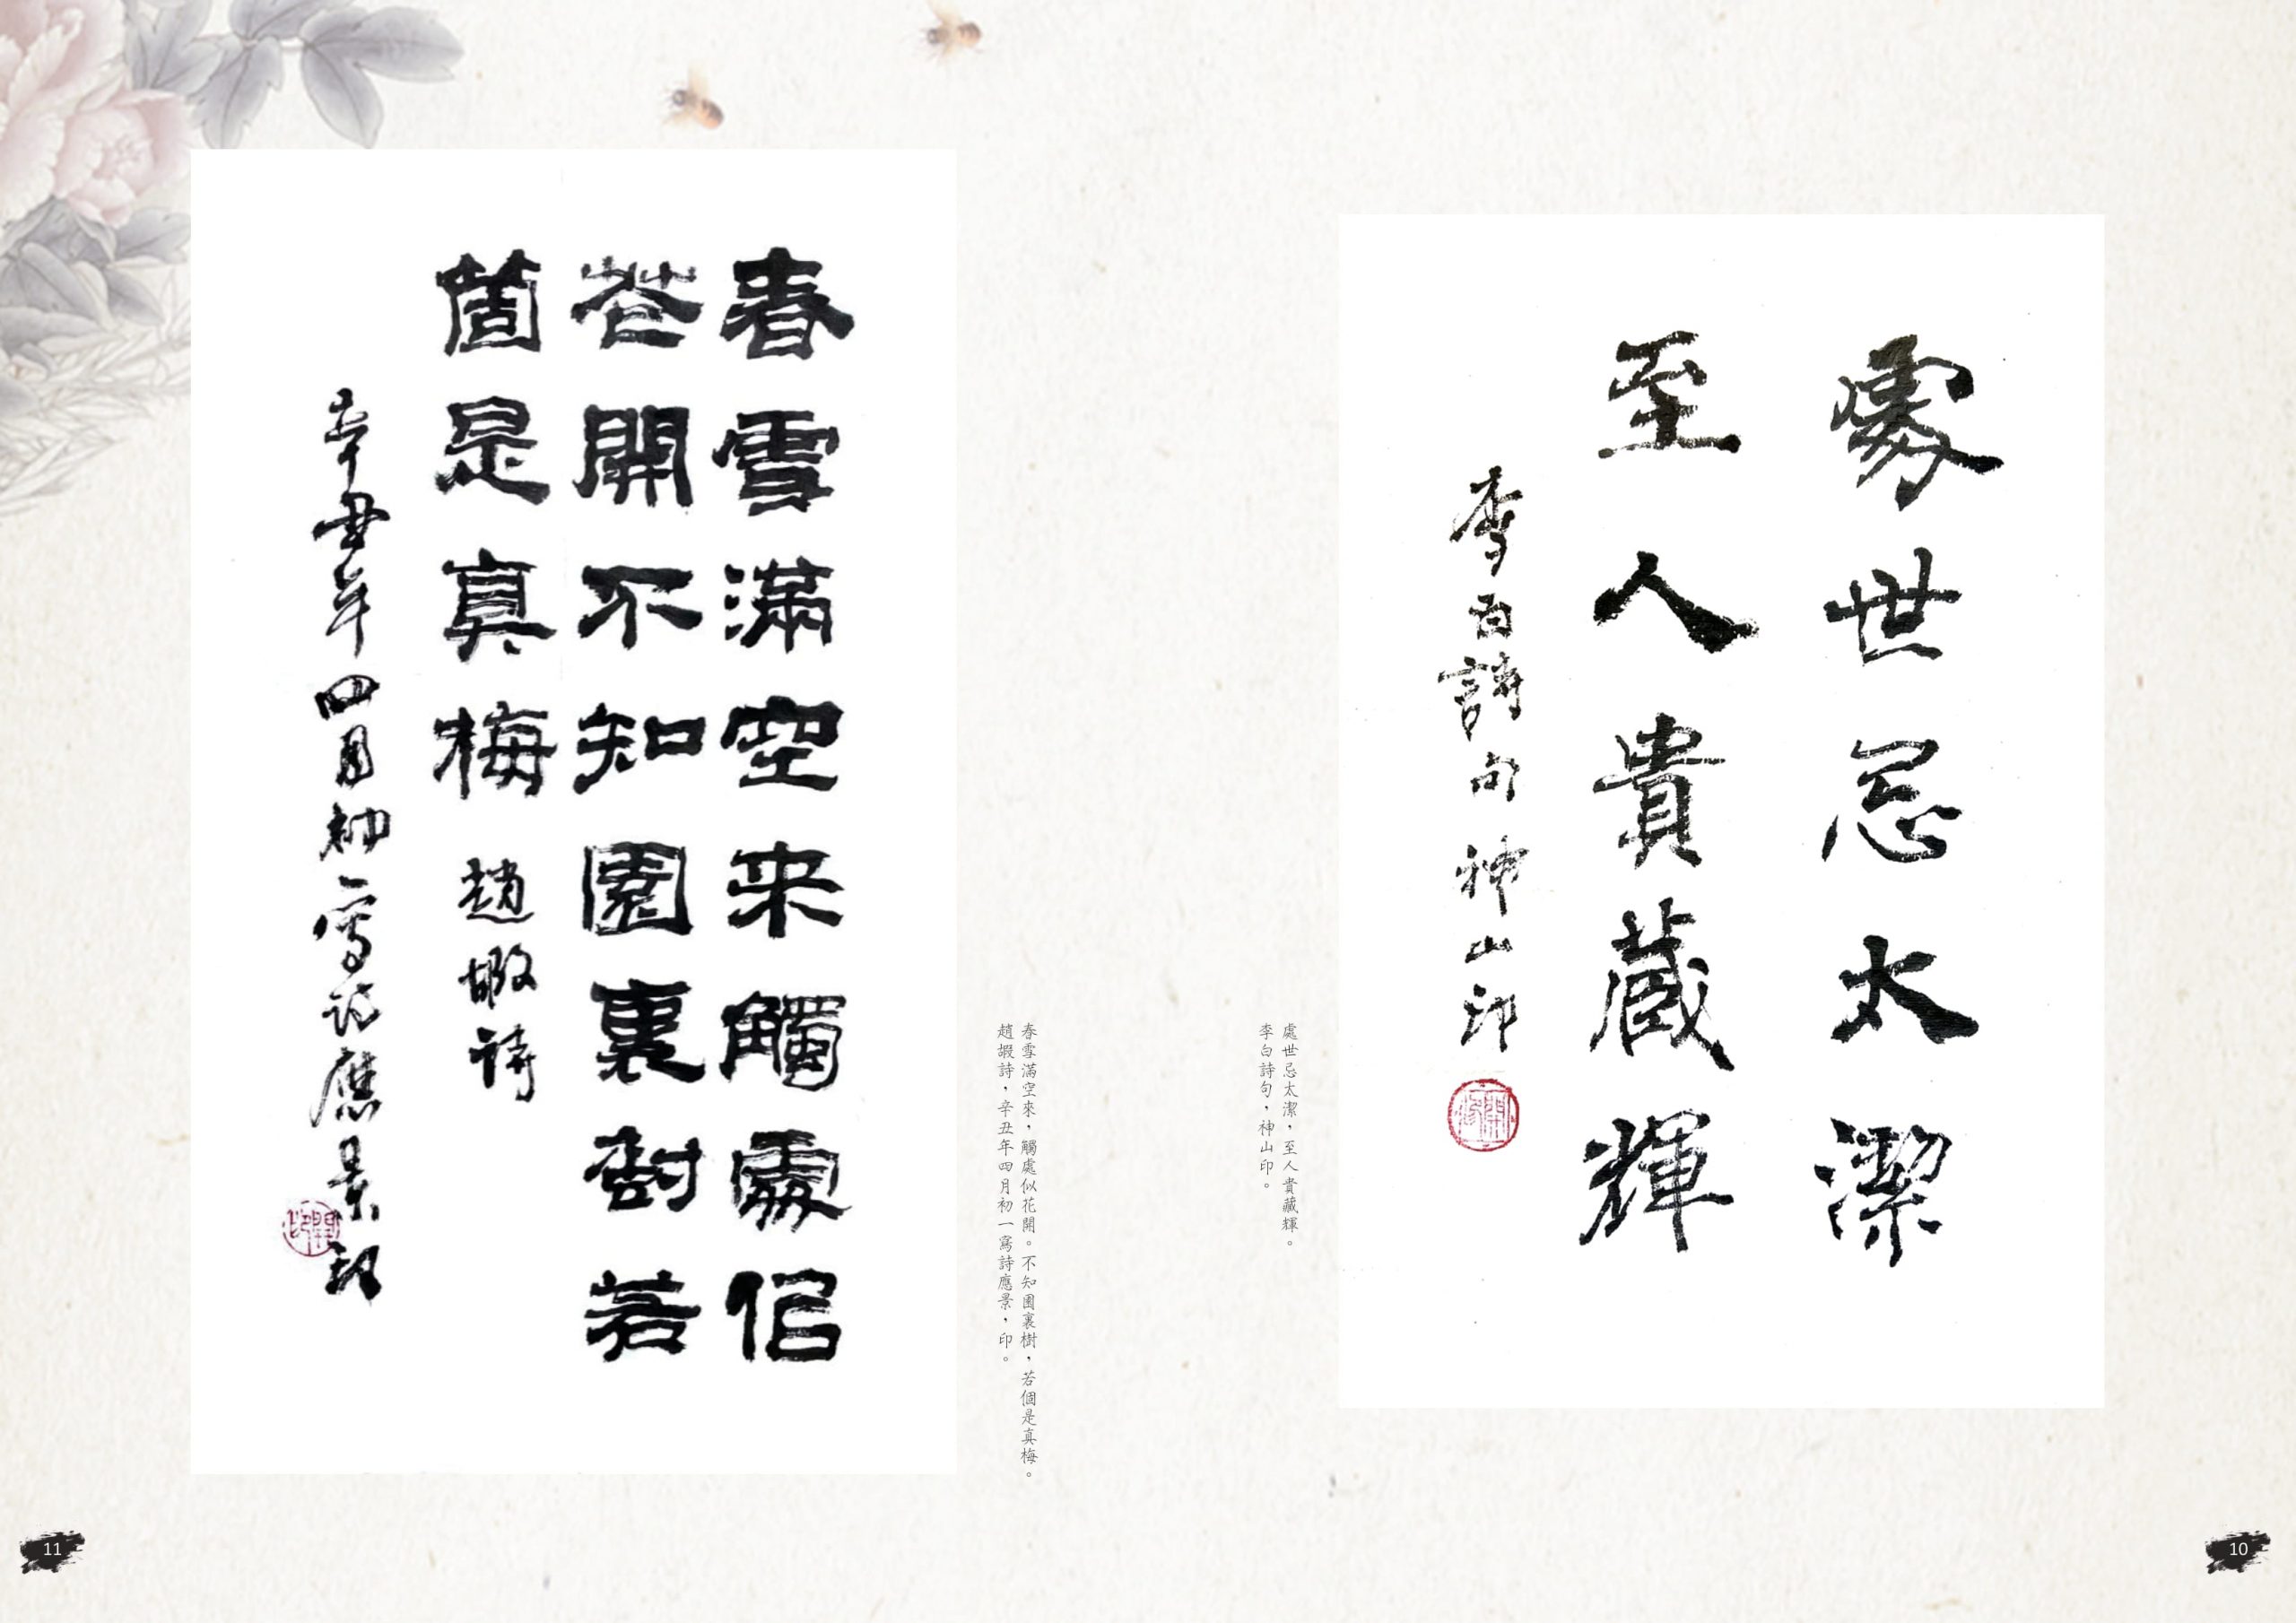 處世忌太潔
至人貴藏輝
李白詩句 神山印
處世忌太潔，至人貴藏輝。
李白詩句，神山印。
10
春雪滿空来觸處侣
花開不知園裏樹若
箇是真梅 趙嘏詩
辛丑年四月初一寫詩應景 印
春雪滿空來，觸處似花開。不知園裏樹，若個是真梅。
趙嘏詩，辛丑年四月初一寫詩應景，印。
11